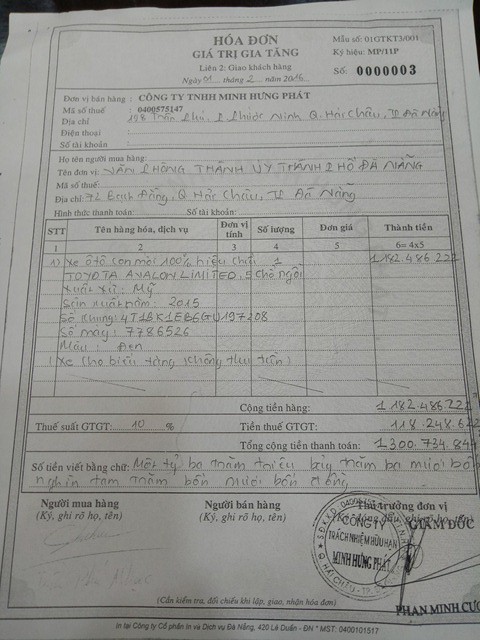 HÓA ĐƠN
GIÁ TRỊ GIA TĂNG
Liên 2: Giao khách hàng
Ngày 01 tháng 2 năm 2016
Mẫu số: 01GTKT3/001
Ký hiệu: MP/11P
Số: 0000003
Đơn vị bán hàng: CÔNG TY TNHH MINH HƯNG PHÁT
Mã số thuế: 0400575147
Địa chỉ 198 Q. Hải Châu, Đà Nẵng
Điện thoại
Số tài khoản
Họ tên người mua hàng:
Tên đơn vị: VĂN PHÒNG THÀNH ỦY THÀNH PHỐ ĐÀ NẴNG
Mã số thuế
Địa chỉ: 72 Bạch Đằng, Q Hải Châu, TP Đà Nẵng
Hình thức thanh toán: Số tài khoản:
STT Tên hàng hóa, dịch vụ Đơn vị tính Số lượng Đơn giá Thành tiền
1 2 3 4 5 6= 4x5
1) Xe ôtô con mới 100% hiệu 1 1.182.486.222
TOYOTA AVALON LIMITED, 5 chỗ ngồi
Xuất xứ: Mỹ
Sản xuất năm: 2015
Số khung: 4T1BK1EB6GU197208
Số máy: 7786526
Màu: Đen
(Xe cho biếu tặng, không thu tiền)
Cộng tiền hàng: 1.182.486.222
Thuế suất GTGT: 10 % Tiền thuế GTGT: 118.248.622
Tổng cộng tiền thanh toán: 1.300.734.844
Số tiền viết bằng chữ: Một tỷ ba trăm triệu bảy trăm ba mươi bốn
nghìn tám trăm bốn mươi bốn đồng
Người mua hàng Người bán hàng Thủ trưởng đơn vị
(Ký, ghi rõ họ, tên) (Ký, ghi rõ họ, tên)
GIÁM ĐỐC
CÔNG TY
TRÁCH NHIỆM HỮU HẠN
MINH HƯNG PHÁT
PHAN MINH
(Cần kiểm tra, đối chiếu khi lập, giao, nhận hóa đơn)
In tại Công ty Cổ phần In và Dịch vụ Đà Nẵng, 420 Lê Duẩn - ĐN * MST: 0400101517